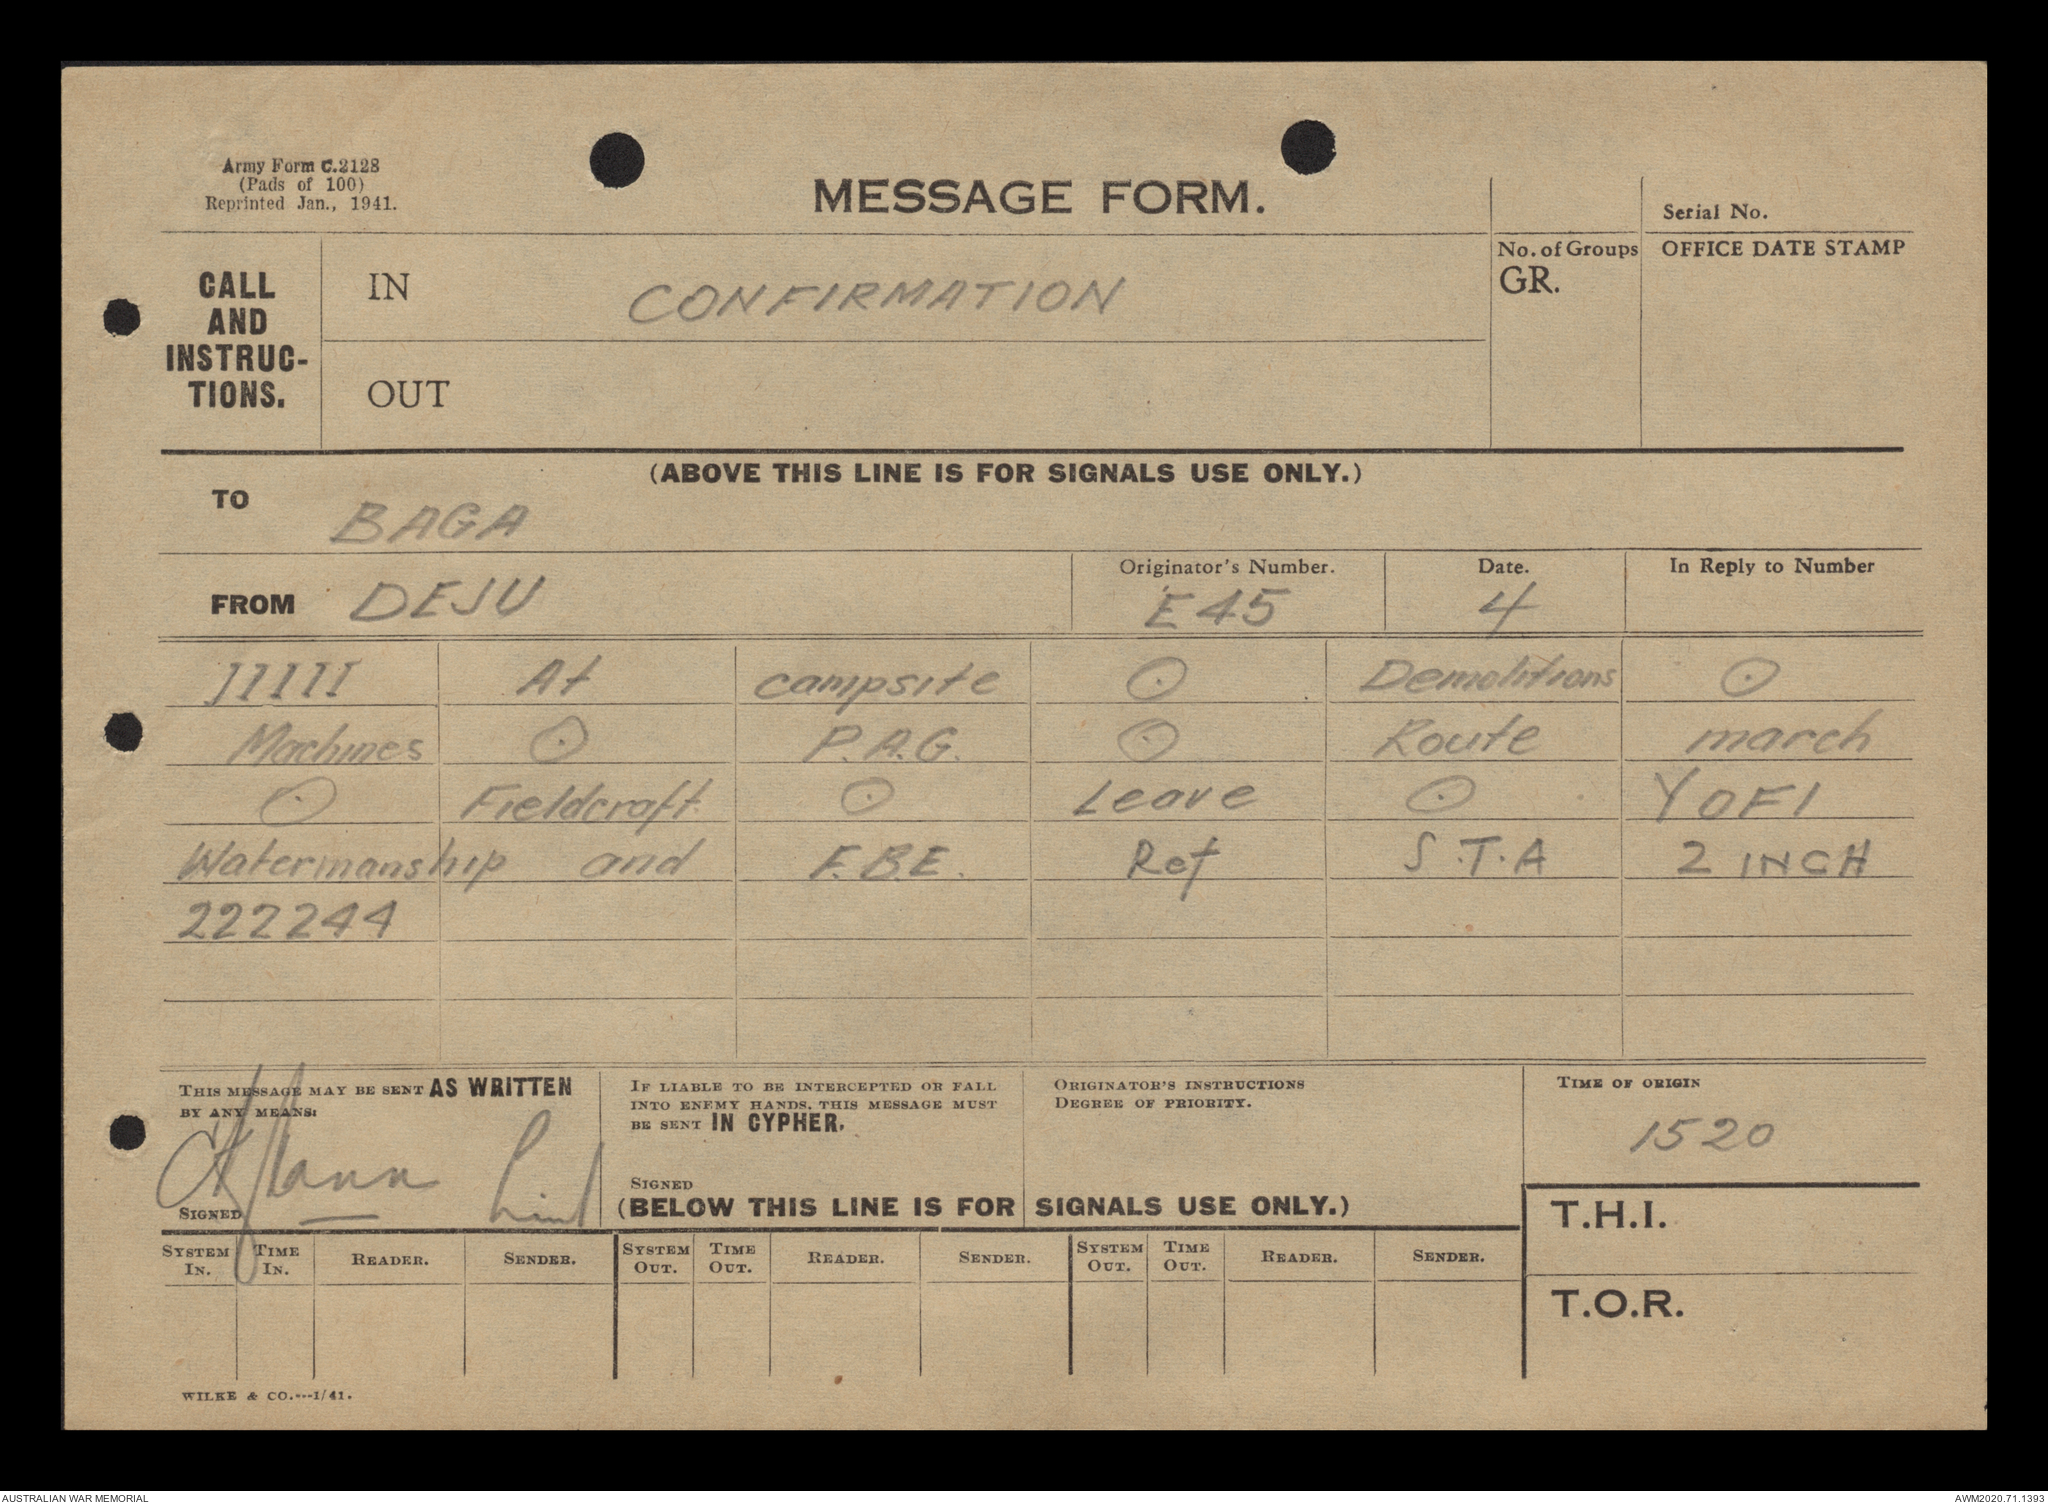 Army Form C.2128
(Pads of 100)
Reprinted Jan., 1941.
MESSAGE FORM.
Serial No.
CALL AND INSTRUC-TIONS.
IN CONFIRMATION
No. of Groups GR.
OFFICE DATE STAMP
OUT
(ABOVE THIS LINE IS FOR SIGNALS USE ONLY.)
TO BAGA
FROM DEJU
Originator's Number. E45
Date. 4
In Reply to Number
At campsite ⊙ Demolitions ⊙
Machines ⊙ P.A.G. ⊙ Route march
⊙ Fieldcraft ⊙ Leave ⊙ YOFI
Watermanship and F.B.E. Ref S.T.A 2 INCH
222244
THIS MESSAGE MAY BE SENT AS WRITTEN
BY ANY MEANS:
SIGNED
IF LIABLE TO BE INTERCEPTED OR FALL
INTO ENEMY HANDS, THIS MESSAGE MUST
BE SENT IN CYPHER.
SIGNED
ORIGINATOR'S INSTRUCTIONS
DEGREE OF PRIORITY.
TIME OF ORIGIN
1520
(BELOW THIS LINE IS FOR SIGNALS USE ONLY.)
T.H.I.
SYSTEM IN. TIME IN. READER. SENDER. SYSTEM OUT. TIME OUT. READER. SENDER. SYSTEM OUT. TIME OUT. READER. SENDER.
T.O.R.
WILKE & CO.---1/41.
AUSTRALIAN WAR MEMORIAL
AWM2020.71.1393